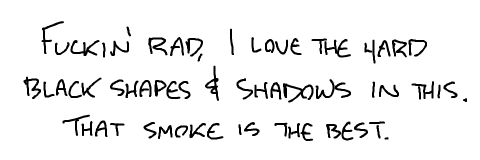 FUCKIN' RAD, I LOVE THE HARD
BLACK SHAPES & SHADOWS IN THIS.
THAT SMOKE IS THE BEST.